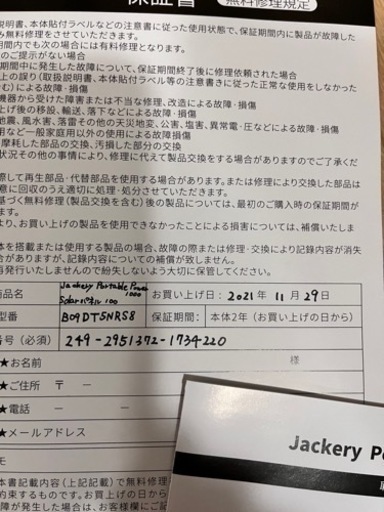 保証書
無料修理規定
説明書、本体貼付ラベルなどの注意書に従った使用状態で、保証期間内に製品が故障した
み無料修理をさせていただきます。
期間内でも次の場合には有料修理となります。
のご提示がない場合
期間中に発生した故障について、保証期間終了後に修理依頼された場合
上の誤り(取扱説明書、本体貼付ラベル等の注意書きに従った正常な使用をしなかった
む)による故障・損傷
機器から受けた障害または不当な修理、改造による故障・損傷
上げ後の移設、輸送、落下などによる故障・損傷
地震、風水害、落雷その他の天災地変、公害、塩害、異常電・圧などによる故障・損傷
用など一般家庭用以外の使用による故障・損傷
摩耗した部品の交換、汚損した部分の交換
状況その他の事情により、修理に代えて製品交換をする場合がありますのでご了承くだ
際して再生部品・代替部品を使用する場合があります。または修理により交換した部品は
意に回収のうえ適切に処理・処分させていただきます。
基づく無料修理(製品交換を含む)後の製品については、最初のご購入時の保証期間が
ます。
より、お買い上げの製品を使用できなかったことによる損害については、補償いたしま
体を搭載または使用する製品の場合、故障の際または修理・交換により記録内容が消失
合がありますが、記録内容についての補償はいたしません。
再発行いたしませんので紛失しないよう大切に保管してください。
商品名
Jackery Portable Power 1000
Solarパネル 100
お買い上げ日:2021年 11月 29日
型番
B09DT5NRS8
保証期間: 本体2年(お買い上げの日から)
番号(必須)
249-2951372-1734220
★お名前
様
★ご住所 〒 ー
★電話 ー ー
★メールアドレス
モ
本書記載内容(上記記載)で無料修理
約束するものです。お買い上げの日から
障が発生した場合は、お客様欄にご記
Jackery Po